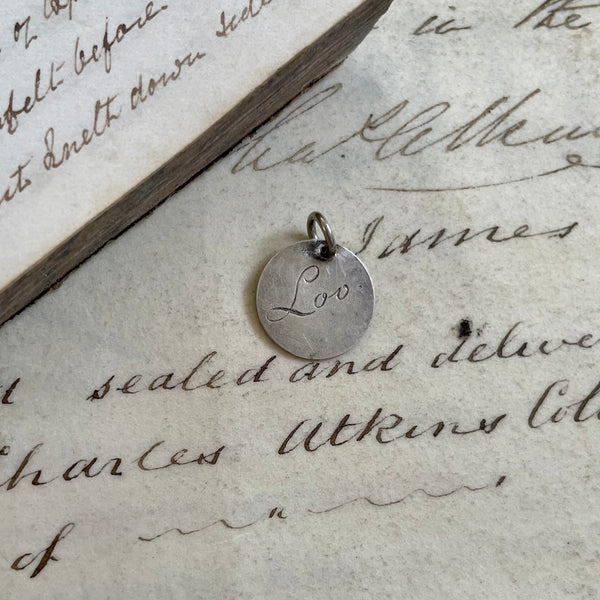 of
felt before.
Kneth down side
in the
James
Loo
sealed and delive
Charles Atkins Col
of